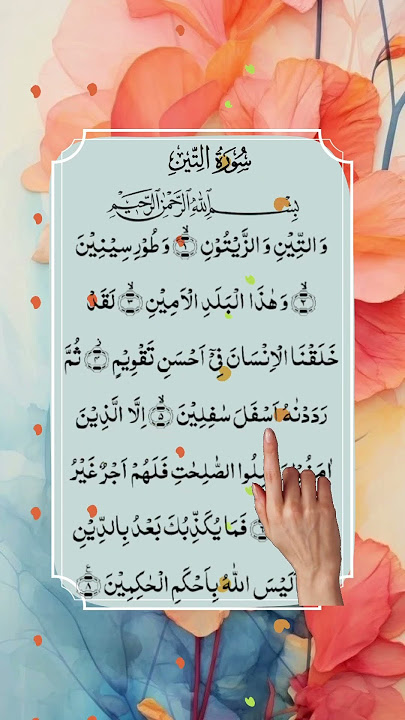 سُوْرَةُ التِّيْنِ
بِسْمِ اللّٰهِ الرَّحْمٰنِ الرَّحِيْمِ
وَالتِّيْنِ وَالزَّيْتُوْنِ ۝١ وَطُوْرِ سِيْنِيْنَ
۝٢ وَهٰذَا الْبَلَدِ الْاَمِيْنِ ۝٣ لَقَدْ
خَلَقْنَا الْاِنْسَانَ فِيْٓ اَحْسَنِ تَقْوِيْمٍ ۝٤ ثُمَّ
رَدَدْنٰهُ اَسْفَلَ سٰفِلِيْنَ ۝٥ اِلَّا الَّذِيْنَ
الصّٰلِحٰتِ فَلَهُمْ اَجْرٌ غَيْرُ
فَمَا يُكَذِّبُكَ بَعْدُ بِالدِّيْنِ
اَلَيْسَ اللّٰهُ بِاَحْكَمِ الْحٰكِمِيْنَ ۝٨